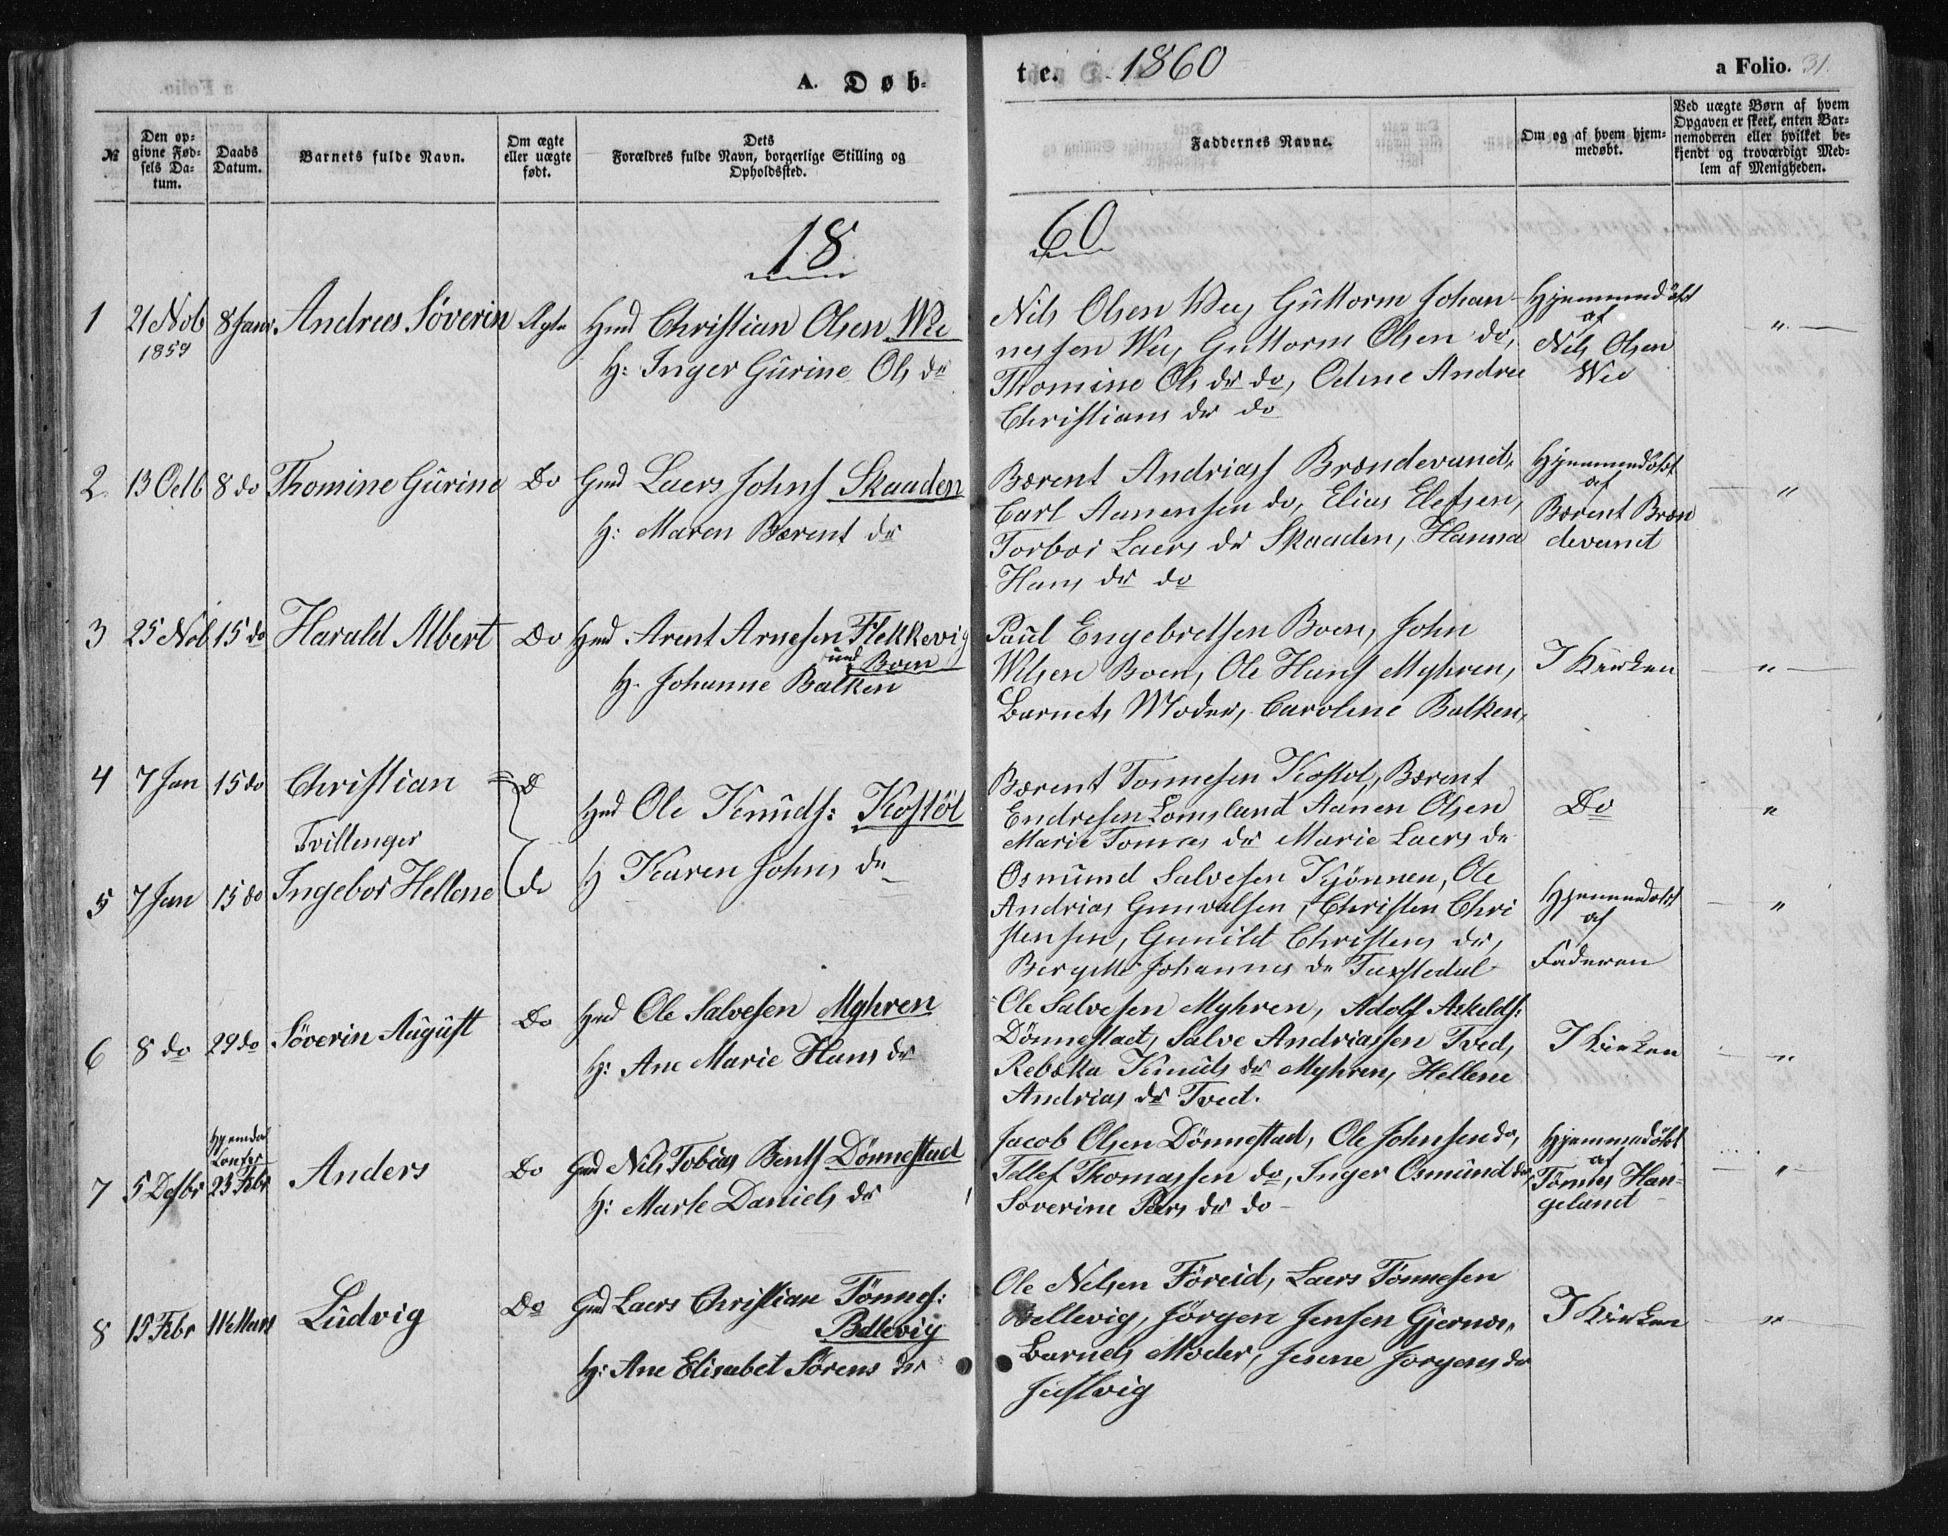 A. Døb-
te. 1860
a Folio. 31.
№
Den op-
givne Fød-
sels Da-
tum.
Daabs
Datum.
Barnets fulde Navn.
Om ægte
eller uægte
født.
Dets
Forældres fulde Navn, borgerlige Stilling og
Opholdssted.
Faddernes Navne.
Om og af hvem hjem-
medøbt.
Ved uægte Børn af hvem
Opgaven er skeet, enten Bar-
nemoderen eller hvilket be-
kjendt og troværdigt Med-
lem af Menigheden.
18 60
1 21 Nob 8 Janr Andreas Söverin Ægte Hmd Christian Olsen Wee
1859
H: Inger Gurine Ols dr
Nils Olsen Wee, Guttorm Johan
nessen Wee, Guttorm Olsen do,
Thomine Ols dr do, Odine Andrea
Christians dr do
Hjemmedöbt
af
Nils Olsen
Wee
"
2 13 Octb 8 do Thomine Gurine Do Gmd Laers Johns Skaaden
H: Maren Bærent dr
Bærent Andriass Brændevand,
Carl Aanensen do, Elias Elefsen,
Torbor Laers dr Skaaden, Hanna
Hans dr do
Hjemmedöbt
af
Bærent Bræn
devand
"
3 25 Nob 15 do Harald Albert Do Hmd Arent Arnesen Flekkevig
und Boen
H. Johanne Balken
Paul Engebretsen Boen, John
Nilsen Boen, Ole Hans Myhren,
Barnets Moder, Caroline Balken,
I Kirken
"
4 7 Jan 15 do Christian D
Tvillenger
Hmd Ole Knuds: Kostöl
H Karen Johns dr
Bærent Tonnesen Kostol, Bærent
Endresen Lomsland Aanen Olsen
Marie Tonnes dr Marie Laers dr
Do
"
5 7 Jan 15 do Ingebor Hellene do
Osmund Salvesen Kjönnen, Ole
Andrias Gunvalsen, Christen Chri
stensen, Gunild Christens dr,
Bergitte Johannes dr
Hjemmedöbt
af
Faderen
"
6 8 do 29 do Söverin August Do Hmd Ole Salvesen Myhren
H: Ane Marie Hans dr
Ole Salvesen Myhren, Adolf Askelds:
Dönnestad, Salve Andriassen Tved,
Rebekka Knuds dr Myhren, Hellene
Andrias dr Tved.
I Kirken
"
7 5 Desbr 23 Febr Anders Do Gmd Nils Tobias Bents Dönnestad
H: Marte Daniels dr
Jacob Olsen Dönnestad, Ole Johnsen do,
Tellef Thomassen do, Inger Osmund dr,
Soverine Pers dr do
Hjemmedöbt
af
Tönnes Han-
geland
"
8 15 Febr 11 Mars Ludvig Do Gmd Laers Christian Tönnes:
Bellevig
H: Ane Elisabet Sörens dr
Ole Nelsen Föreid, Laers Tönnesen
Bellevig, Jörgen Jensen Gjernæs,
Barnets Moder, Jesine Jorgens dr
Justvig
I Kirken
"